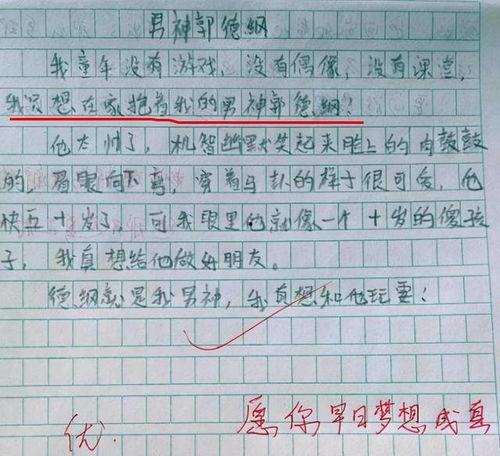 男神郭德纲
我童年没有游戏,没有偶像,没有课堂,
我只想在家抱着我的男神郭德纲!
他太帅了,机智幽默笑起来脸上的肉鼓鼓
的,眉眼向下弯,穿着马卦的样子很可爱,他
快五十岁了,可我眼里他就像一个十岁的傻孩
子,我真想给他做好朋友。
德纲就是我男神,我真想和他玩耍!
优.
愿你早日梦想成真